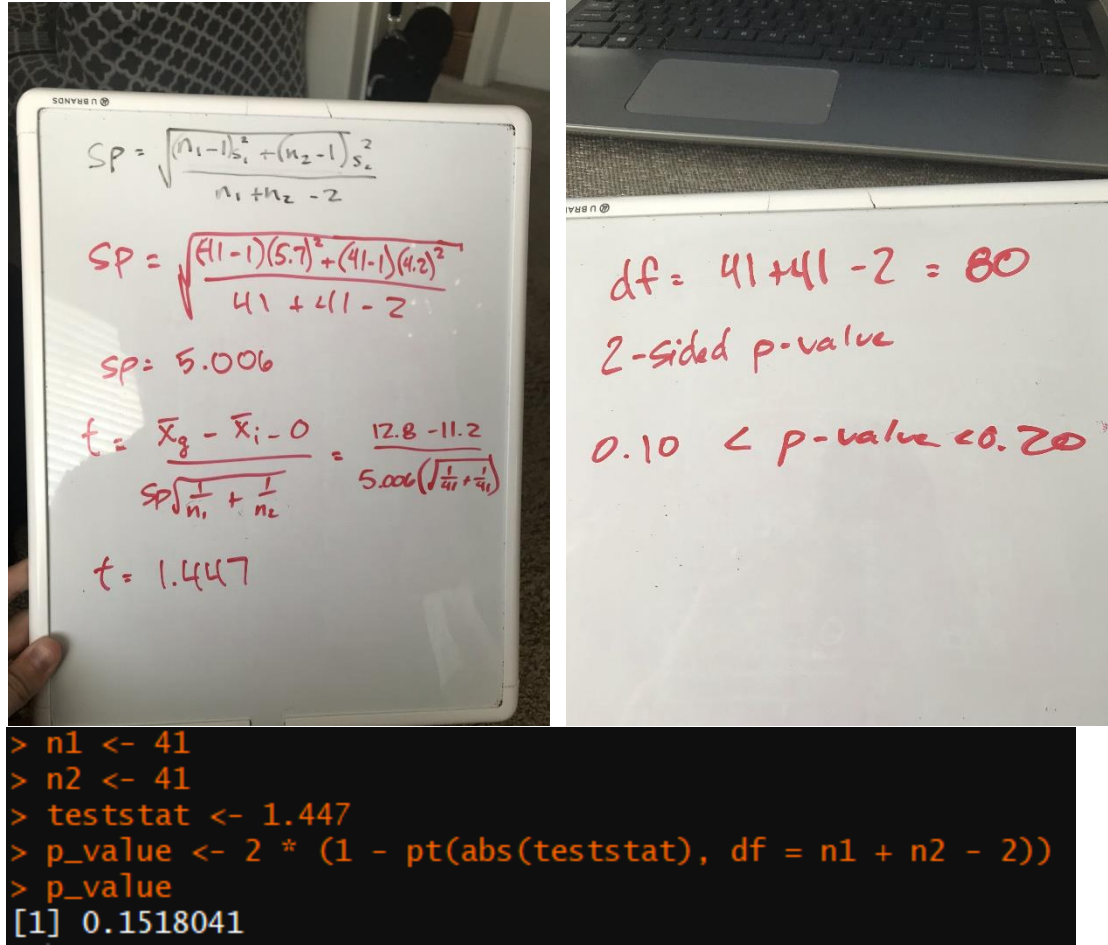 U BRANDS
SP = √((n₁-1)s₁² + (n₂-1)s₂² / n₁+n₂-2)
SP = √((41-1)(5.7)² + (41-1)(4.2)² / 41 + 41 - 2)
SP = 5.006
t = x̄g - x̄i - 0 / SP√(1/n₁ + 1/n₂) = 12.8 - 11.2 / 5.006(√(1/41 + 1/41))
t = 1.447
U BRAN
df = 41+41-2 = 80
2-sided p-value
0.10 < p-value < 0.20
> n1 <- 41
> n2 <- 41
> teststat <- 1.447
> p_value <- 2 * (1 - pt(abs(teststat), df = n1 + n2 - 2))
> p_value
[1] 0.1518041